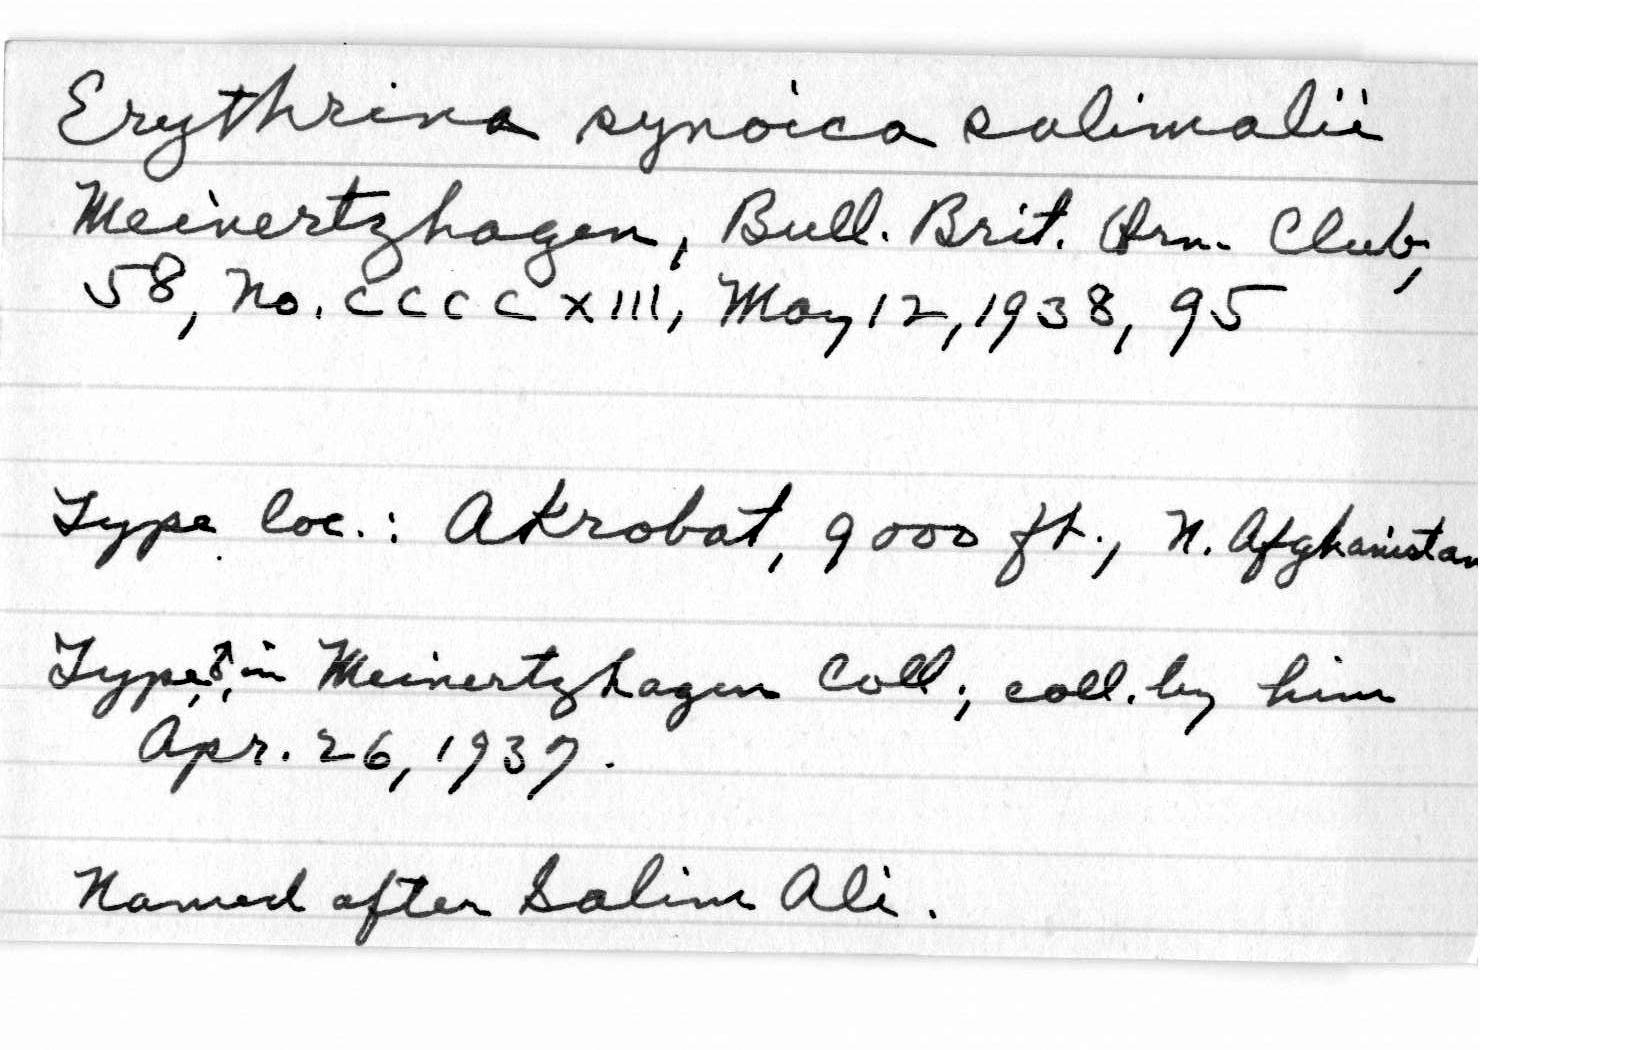 Erythrina synoica salimalii
Meinertzhagen, Bull. Brit. Orn. Club,
58, No. CCCCXIII, May 12, 1938, 95
Type loc.: Akrobat, 9000 ft., N. Afghanistan
Type, ♂, in Meinertzhagen Coll; coll. by him
Apr. 26, 1937.
Named after Salim Ali.